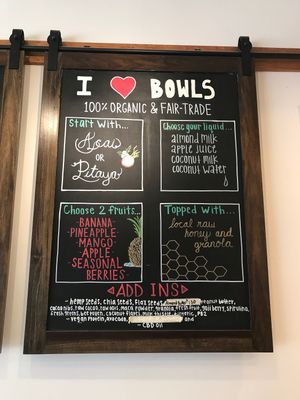 I ❤ BOWLS
100% ORGANIC & FAIR-TRADE
Start With...
Acai
OR
Pitaya
Choose your liquid...
almond milk
apple juice
coconut milk
coconut water
Choose 2 fruits...
BANANA
PINEAPPLE
MANGO
APPLE
SEASONAL
BERRIES
Topped With...
local raw
honey and
granola
ADD INS
- hemp seeds, chia seeds, flax seeds, peanut butter,
cacao nibs, raw cacao, raw oats, maca powder, granola, fresh fruit, goji berry, spirulina,
fresh greens, bee pollen, coconut flakes, milk thistle, turmeric, PB2
- vegan protein, avocado, and
- CBD oil